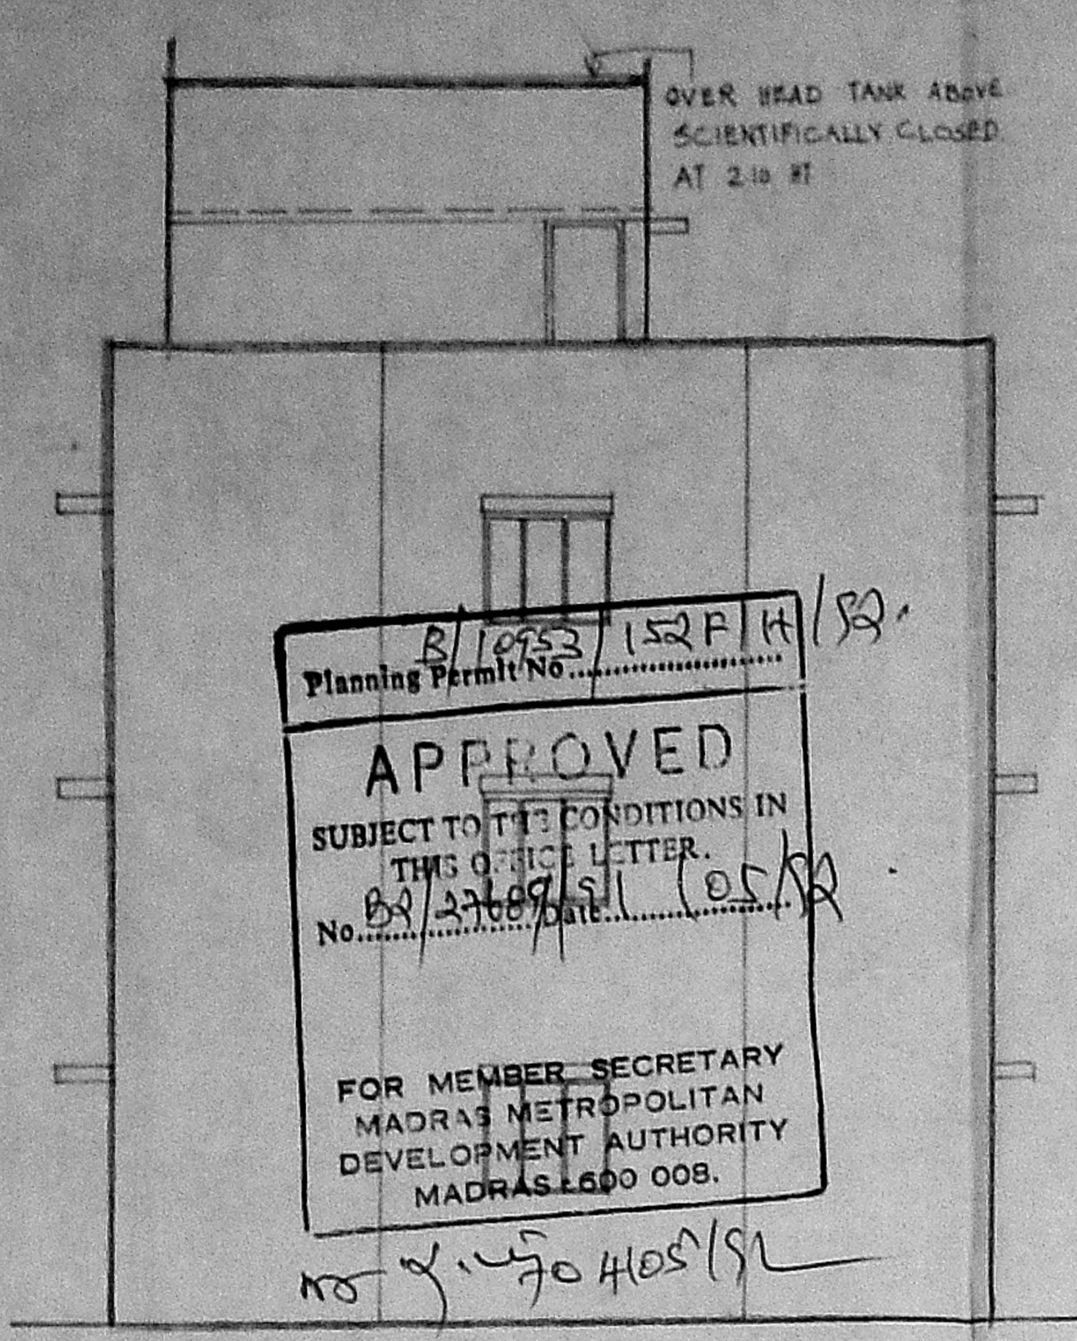 OVER HEAD TANK ABOVE
SCIENTIFICALLY CLOSED
AT 2.10 HT
Planning Permit No. B/10953/152F/H/92.
APPROVED
SUBJECT TO THE CONDITIONS IN
THIS OFFICE LETTER.
No. B2/27689/91 Date /05/92
FOR MEMBER SECRETARY
MADRAS METROPOLITAN
DEVELOPMENT AUTHORITY
MADRAS-600 008.
4/05/92